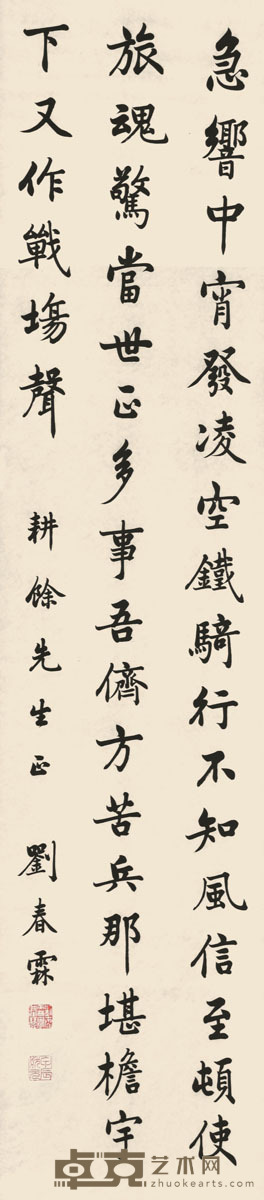 急響中宵發凌空鐵騎行不知風信至頓使
旅魂驚當世正多事吾儕方苦兵那堪檐宇
下又作戰場聲
耕餘先生正
劉春霖
卓克艺术网
zhuokearts.com